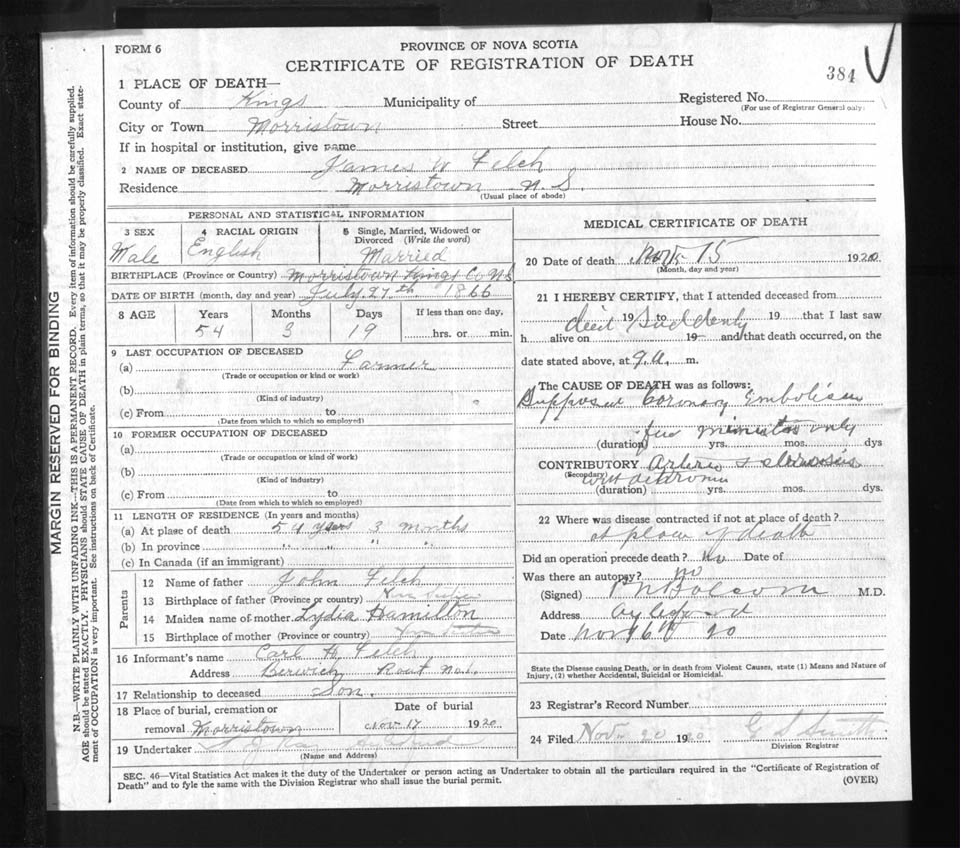 FORM 6
PROVINCE OF NOVA SCOTIA
CERTIFICATE OF REGISTRATION OF DEATH
384
1 PLACE OF DEATH—
County of Kings Municipality of Registered No.
(For use of Registrar General only)
City or Town Morristown Street House No.
If in hospital or institution, give name
2 NAME OF DECEASED James W Felch
Residence Morristown N. S.
(Usual place of abode)
PERSONAL AND STATISTICAL INFORMATION
3 SEX 4 RACIAL ORIGIN 5 Single, Married, Widowed or Divorced (Write the word)
Male English Married
BIRTHPLACE (Province or Country) Morristown Kings Co NS
DATE OF BIRTH (month, day and year) July 27th 1866
8 AGE Years Months Days If less than one day,
54 3 19 hrs. or min.
9 LAST OCCUPATION OF DECEASED
(a) Farmer
(Trade or occupation or kind or work)
(b)
(Kind of industry)
(c) From to
(Date from which to which so employed)
10 FORMER OCCUPATION OF DECEASED
(a)
(Trade or occupation or kind of work)
(b)
(Kind of industry)
(c) From to
(Date from which to which so employed)
11 LENGTH OF RESIDENCE (In years and months)
(a) At place of death 54 years 3 months
(b) In province " " " "
(c) In Canada (if an immigrant)
Parents
12 Name of father John Felch
13 Birthplace of father (Province or country) Nova Scotia
14 Maiden name of mother Lydia Hamilton
15 Birthplace of mother (Province or country) Nova Scotia
16 Informant's name Carl H Felch
Address Berwick Rout No 1.
17 Relationship to deceased Son.
18 Place of burial, cremation or Date of burial
removal Morristown Nov 17 1920
19 Undertaker
(Name and Address)
MEDICAL CERTIFICATE OF DEATH
20 Date of death Nov 15 1920
(Month, day and year)
21 I HEREBY CERTIFY, that I attended deceased from
19 to 19 that I last saw
died Suddenly
h alive on 19 and that death occurred, on the
date stated above, at 9 a. m.
The CAUSE OF DEATH was as follows:
Supposed Coronary Embolism
few minutes only
(duration) yrs. mos. dys
CONTRIBUTORY Arterio sclerosis
(Secondary)
(duration) yrs. mos. dys.
22 Where was disease contracted if not at place of death?
at place of death
Did an operation precede death? No Date of
Was there an autopsy? no
(Signed) P N Balcom M.D.
Address Aylesford
Date Nov 16th 20
State the Disease causing Death, or in death from Violent Causes, state (1) Means and Nature of
Injury, (2) whether Accidental, Suicidal or Homicidal.
23 Registrar's Record Number
24 Filed Nov 20 1920 G S Smith
Division Registrar
SEC. 46—Vital Statistics Act makes it the duty of the Undertaker or person acting as Undertaker to obtain all the particulars required in the "Certificate of Registration of
Death" and to fyle the same with the Division Registrar who shall issue the burial permit.
(OVER)
MARGIN RESERVED FOR BINDING
N.B.—WRITE PLAINLY WITH UNFADING INK—THIS IS A PERMANENT RECORD. Every item of information should be carefully supplied.
AGE should be stated EXACTLY. PHYSICIANS should STATE CAUSE OF DEATH in plain terms, so that it may be properly classified. Exact state-
ment of OCCUPATION is very important. See instructions on back of Certificate.